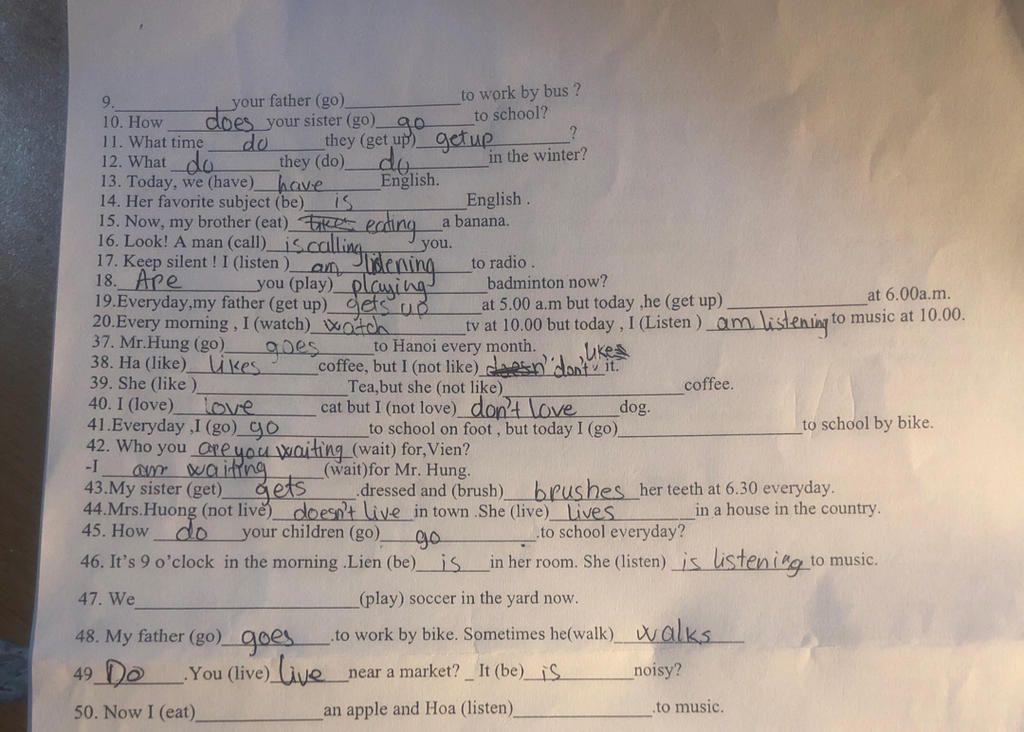 9.____________your father (go)____________to work by bus ?
10. How does your sister (go) go to school?
11. What time do they (get up) getup ?
12. What do they (do) do in the winter?
13. Today, we (have) have English.
14. Her favorite subject (be) is English .
15. Now, my brother (eat) eating a banana.
16. Look! A man (call) is calling you.
17. Keep silent ! I (listen ) am listening to radio .
18. Are you (play) playing badminton now?
19.Everyday,my father (get up) gets up at 5.00 a.m but today ,he (get up) ______________at 6.00a.m.
20.Every morning , I (watch) watch tv at 10.00 but today , I (Listen ) am listening to music at 10.00.
37. Mr.Hung (go) goes to Hanoi every month.
38. Ha (like) likes coffee, but I (not like) doesn't don't like it.
39. She (like )________________Tea,but she (not like)___________________coffee.
40. I (love) love cat but I (not love) don't love dog.
41.Everyday ,I (go) go to school on foot , but today I (go)___________________to school by bike.
42. Who you are you waiting (wait) for,Vien?
-I am waiting (wait)for Mr. Hung.
43.My sister (get) gets .dressed and (brush) brushes her teeth at 6.30 everyday.
44.Mrs.Huong (not live) doesn't live in town .She (live) lives in a house in the country.
45. How do your children (go) go .to school everyday?
46. It's 9 o'clock in the morning .Lien (be) is in her room. She (listen) is listening to music.
47. We________________________(play) soccer in the yard now.
48. My father (go) goes .to work by bike. Sometimes he(walk) walks
49 Do .You (live) live near a market? _ It (be) is noisy?
50. Now I (eat)_____________an apple and Hoa (listen)______________.to music.